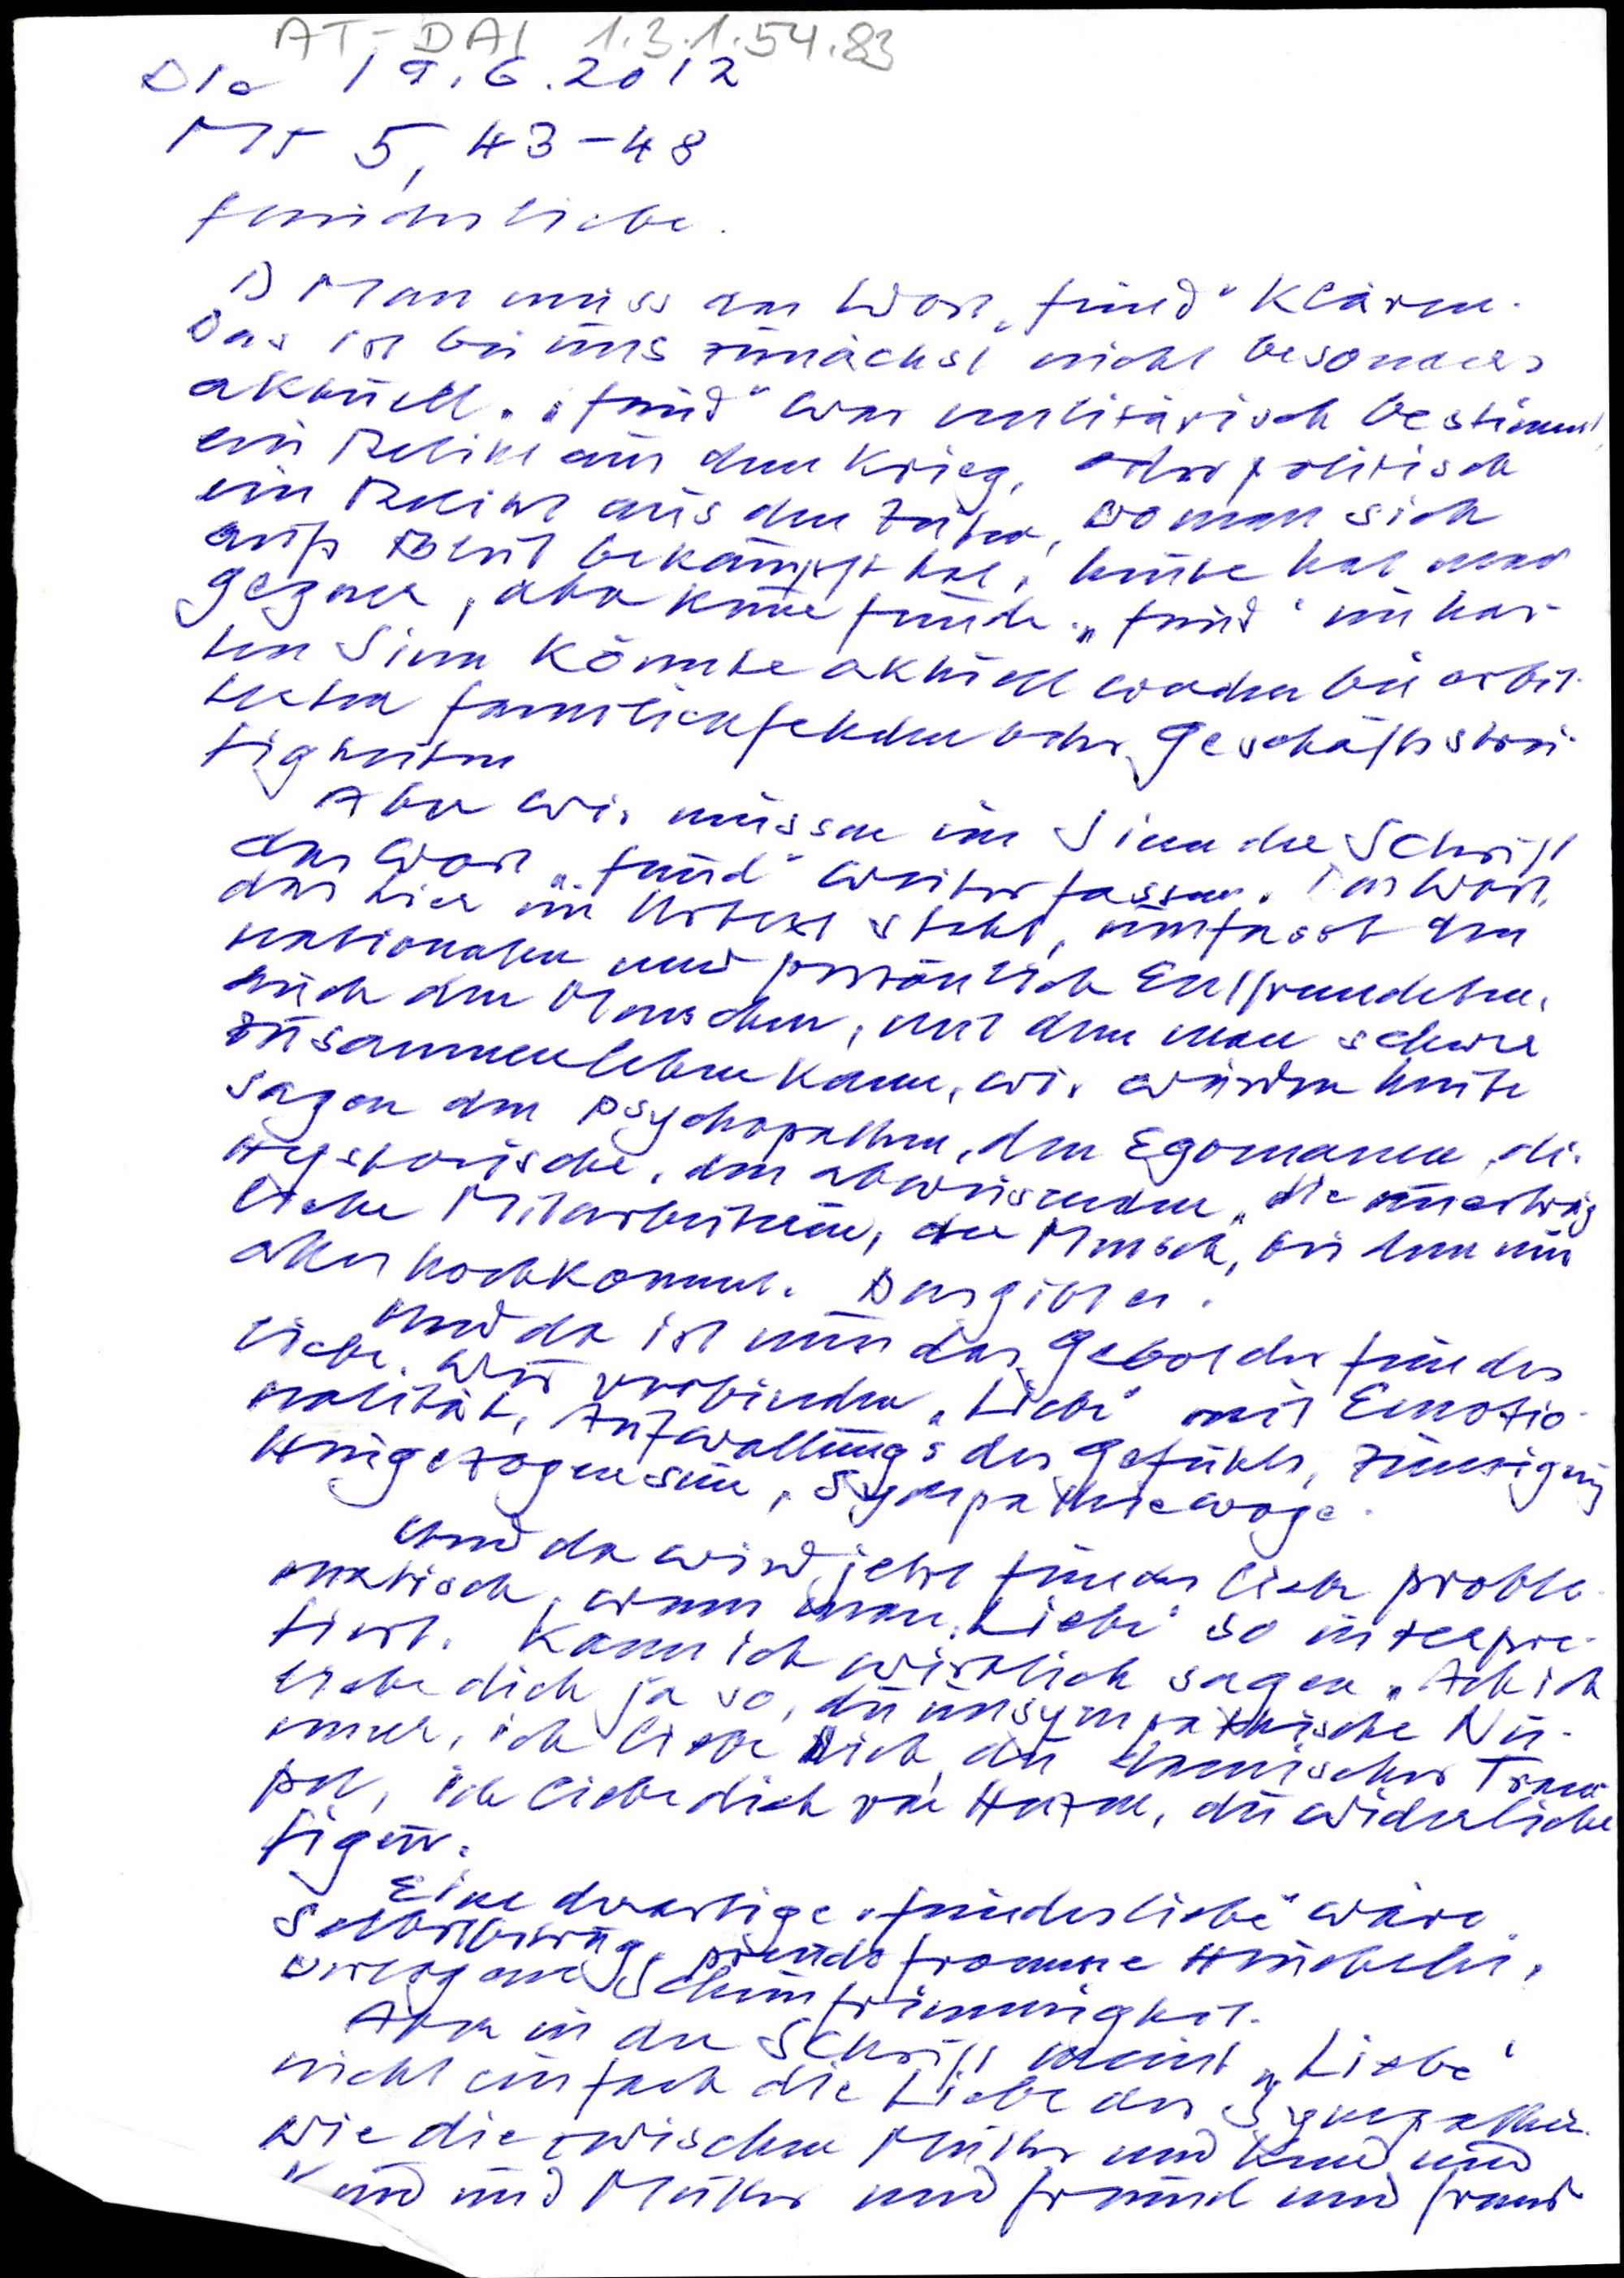 AT-DAI 1.3.1.54.83
Die 19.6.2012
Mt 5, 43-48
Feindesliebe.
1) Man muss das Wort „Feind" klären.
Das ist bei uns zunächst nicht besonders
aktuell. „Feind" war militärisch bestimmt,
ein Relikt aus dem Krieg, oder politisch
ein Relikt aus den Zeiten, wo man sich
aufs Blut bekämpft hat, heute hat man
Gegner, aber keine Feinde. „Feind" im har-
ten Sinn könnte aktuell werden bei erbit-
terten Familienfehden oder Geschäftsstrei-
tigkeiten
Aber wir müssen im Sinn der Schrift
das Wort „Feind" weiter fassen. Das Wort,
das hier im Urtext steht, umfasst den
nationalen und persönlich Entfremdeten,
auch den Menschen, mit dem man schwer
zusammenleben kann, wir würden heute
sagen den Psychopathen, den Egomanen, die
Hysterische, den Abweisenden, die unerträg
liche Mitarbeiterin, der Mensch, bei dem mir
alles hochkommt. Das gibt es.
Und da ist nun das Gebot der Feindes
liebe. Wir verbinden „Liebe" mit Emotio-
nalität, Aufwallung des Gefühls, Zuneigung
Hingezogensein, Sympathiewoge.
Und da wird jetzt Feindesliebe proble-
matisch, wenn man „Liebe" so interpre-
tiert. Kann ich wirklich sagen „Ach ich
liebe dich ja so, du unsympathische Nu-
mmer, ich liebe dich, du komischer Tram
pel, ich liebe dich von Herzen, du widerliche
Figur.
Eine derartige „Feindesliebe" wäre
Selbstbetrug, pseudofromme Heuchelei,
verlogene Scheinfrömmigkeit.
Aber in der Schrift meint „Liebe"
nicht einfach die Liebe der Sympathie
wie die zwischen Mutter und Kind und
Kind und Mutter und Freund und Freund